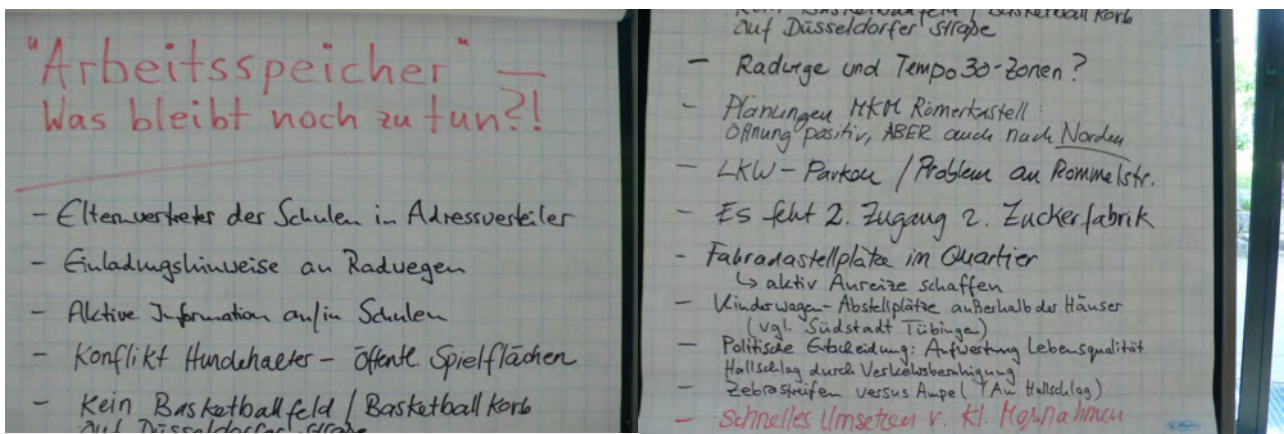 "Arbeitsspeicher" —
Was bleibt noch zu tun?!
- Elternvertreter der Schulen in Adressverteiler
- Einladungshinweise an Radwegen
- Aktive Information an/in Schulen
- Konflikt Hundehalter - öffentl. Spielflächen
- Kein Basketballfeld / Basketballkorb
auf Düsseldorfer Straße
Kein Basketballfeld / Basketballkorb
auf Düsseldorfer Straße
- Radwege und Tempo 30-Zonen?
- Planungen MKM Römerkastell:
Öffnung positiv, ABER auch nach Norden
- LKW-Parken / Problem an Rommelstr.
- Es fehlt 2. Zugang z. Zuckerfabrik
- Fahrradastellplätze im Quartier
↳ aktiv Anreize schaffen
- Kinderwagen-Abstellplätze außerhalb der Häuser
(vgl. Südstadt Tübingen)
- Politische Entscheidung: Aufwertung Lebensqualität
Hallschlag durch Verkehrsberuhigung
- Zebrastreifen versus Ampel (Am Hallschlag)
- Schnelles Umsetzen v. kl. Maßnahmen